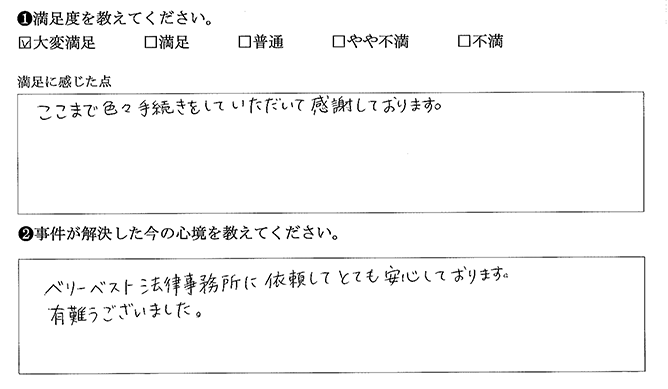 ❶満足度を教えてください。
☑大変満足 □満足 □普通 □やや不満 □不満
満足に感じた点
ここまで色々手続きをしていただいて感謝しております。
❷事件が解決した今の心境を教えてください。
ベリーベスト法律事務所に依頼してとても安心しております。
有難うございました。